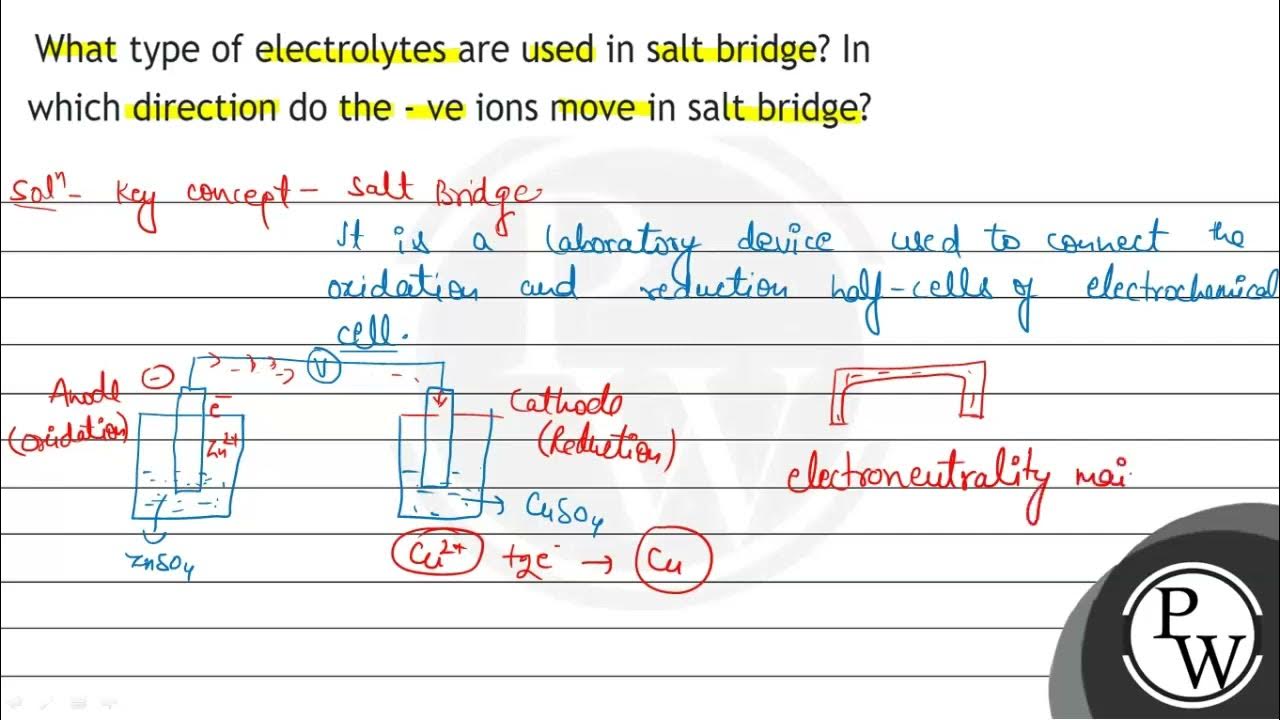 What type of electrolytes are used in salt bridge? In
which direction do the - ve ions move in salt bridge?
Solⁿ - Key concept - Salt Bridge
It is a laboratory device used to connect the
oxidation and reduction half-cells of electrochemical
cell.
V
Anode
(Oxidation)
-
e⁻
Zn²⁺
ZnSO₄
Cathode
(Reduction)
CuSO₄
Cu²⁺ + 2e⁻ → Cu
electroneutrality mai
P
W
P
W